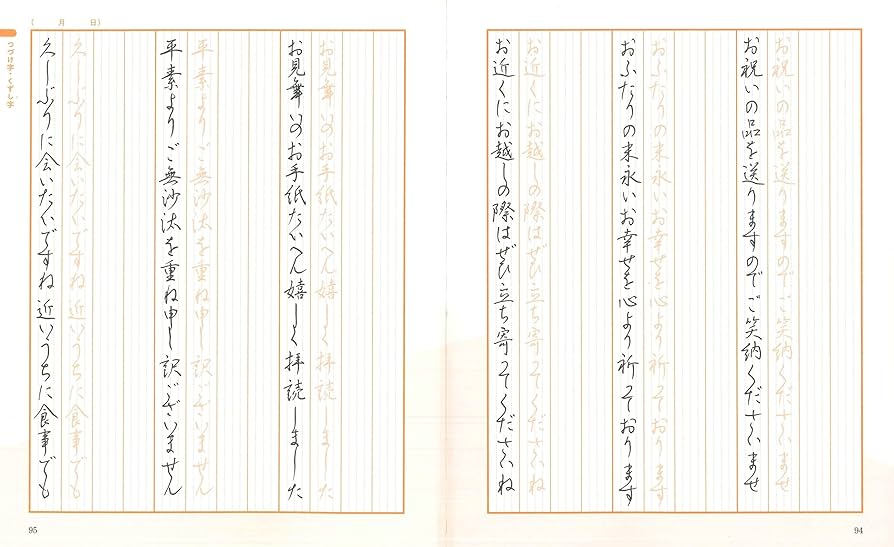 お祝いの品を送りますのでご笑納くださいませ
お祝いの品を送りますのでご笑納くださいませ
おふたりの末永いお幸せを心より祈っております
おふたりの末永いお幸せを心より祈っております
お近くにお越しの際はぜひ立ち寄ってくださいね
お近くにお越しの際はぜひ立ち寄ってくださいね
94
（　月　日）
つづけ字・くずし字
お見舞いのお手紙たいへん嬉しく拝読しました
お見舞いのお手紙たいへん嬉しく拝読しました
平素よりご無沙汰を重ね申し訳ございません
平素よりご無沙汰を重ね申し訳ございません
久しぶりに会いたいですね 近いうちに食事でも
久しぶりに会いたいですね 近いうちに食事でも
95